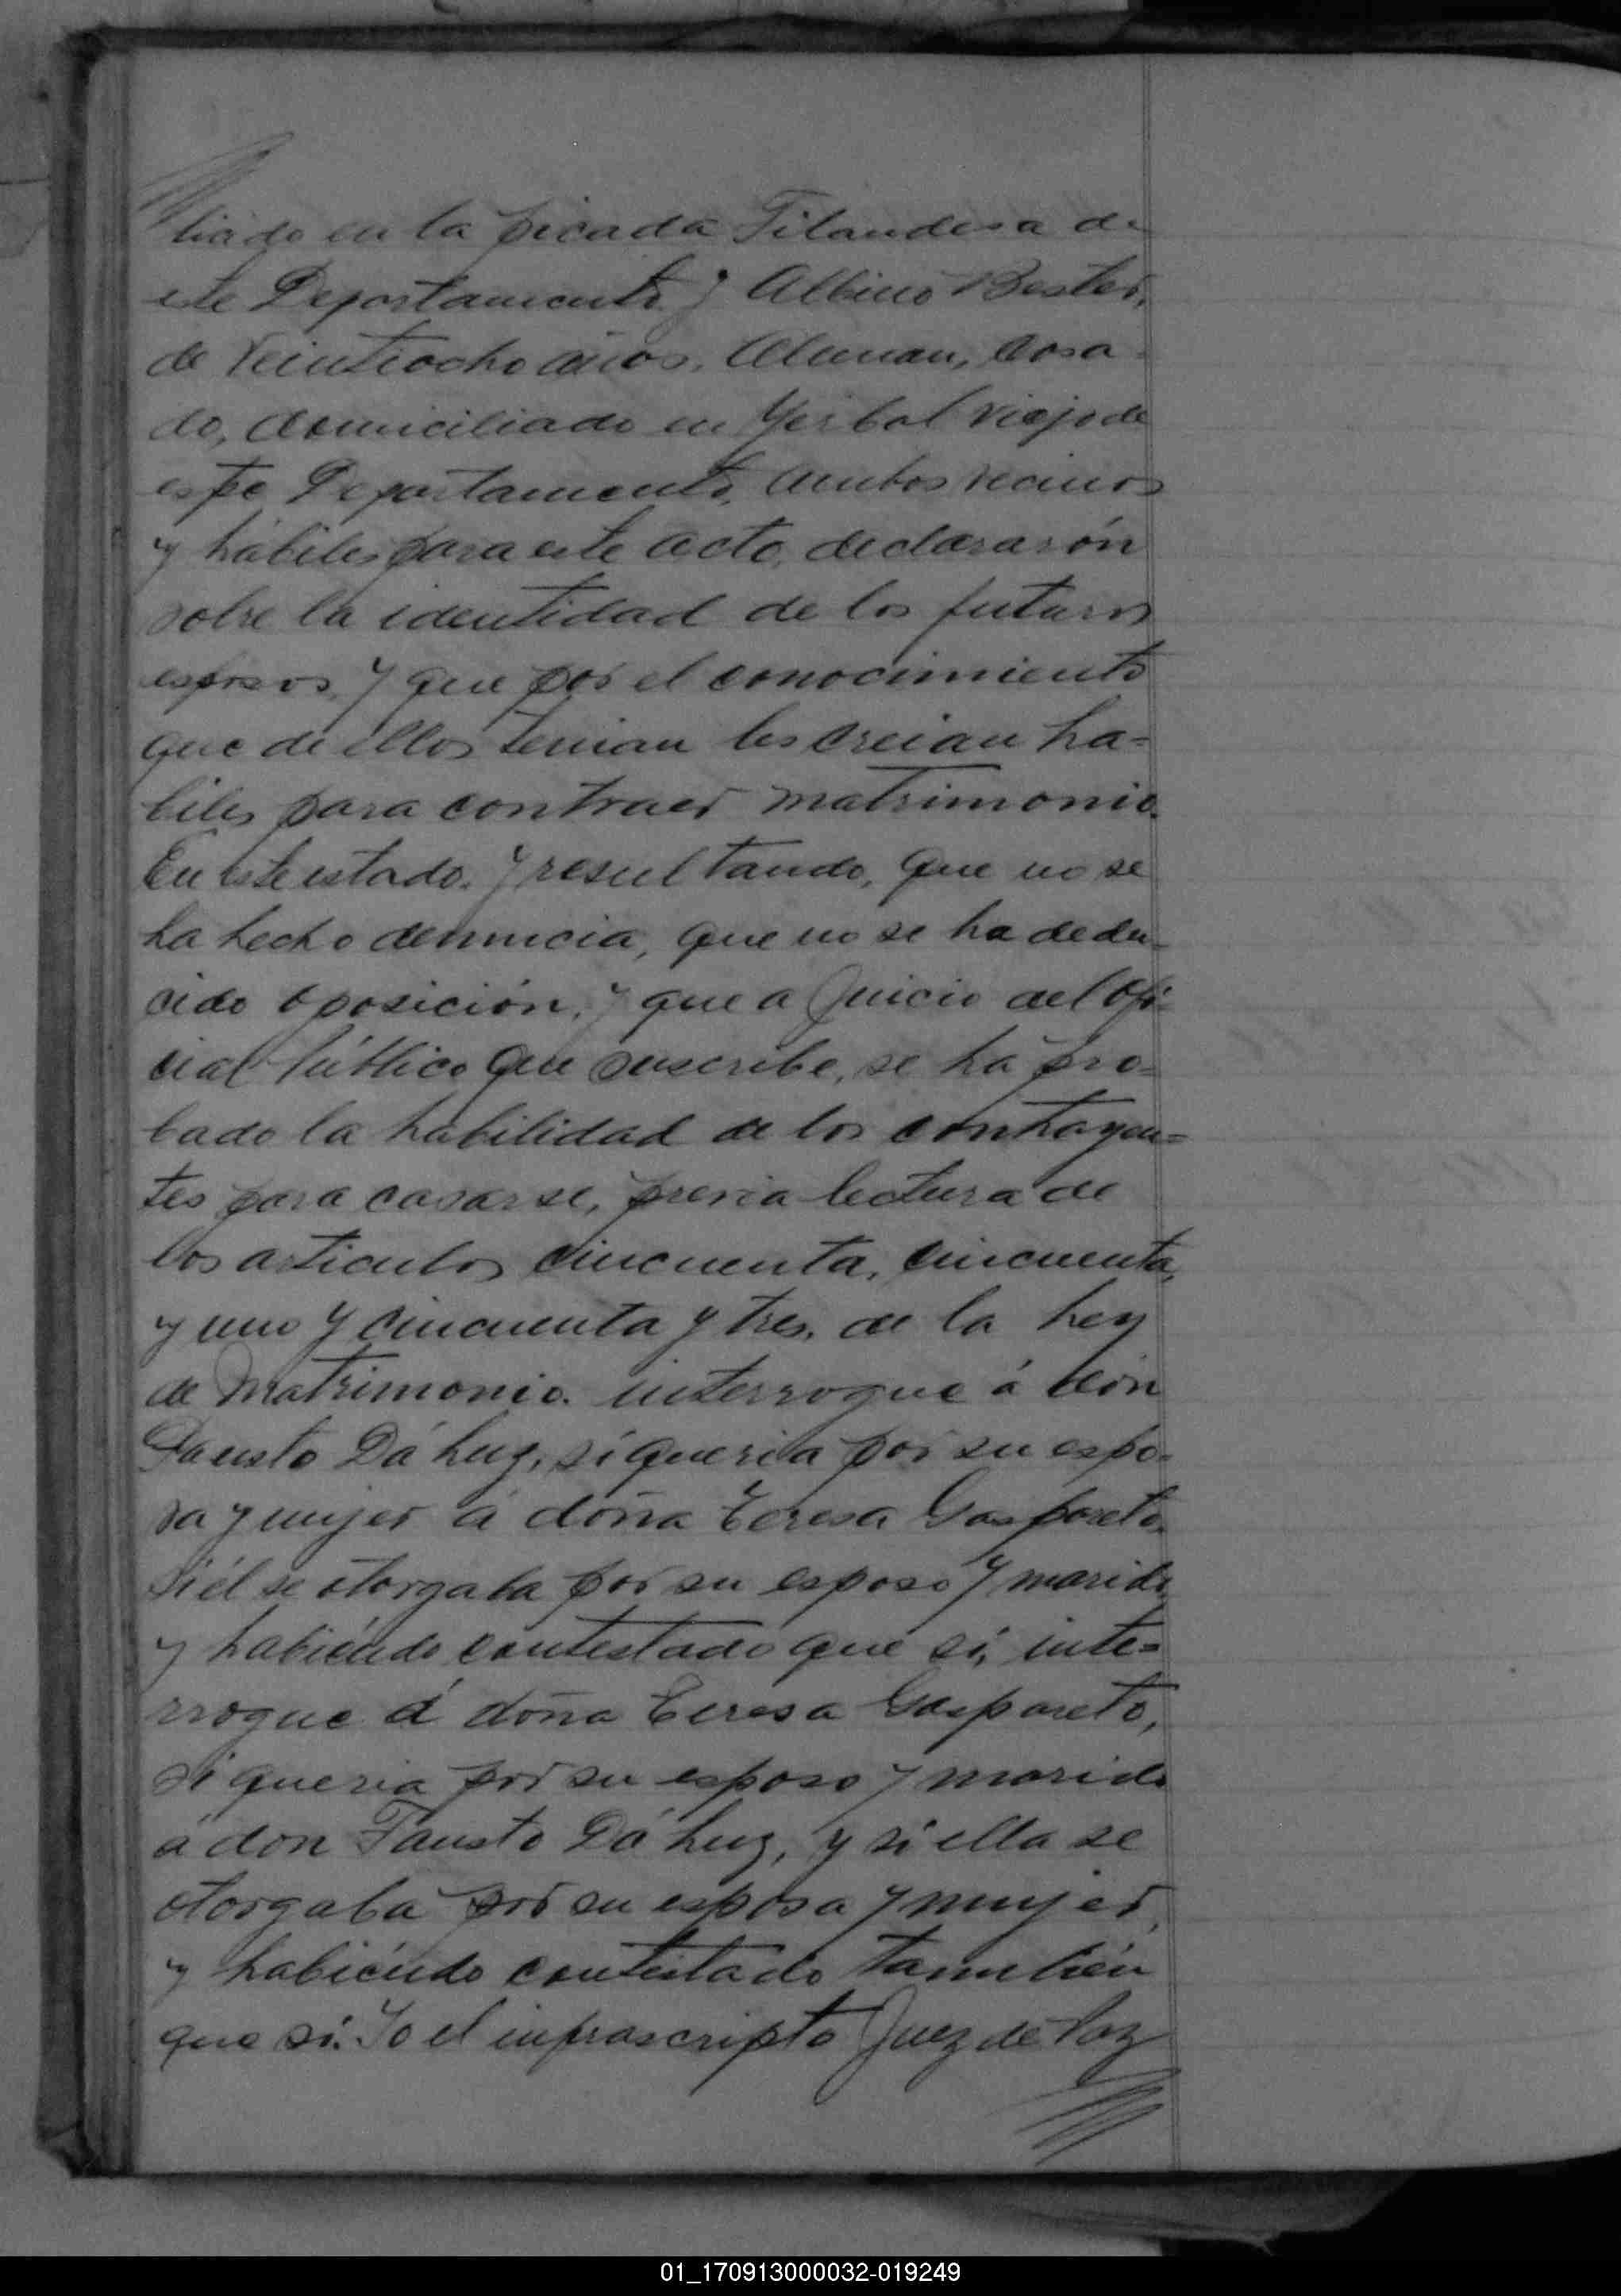 liado en la picada Filandesa de
este Departamento y Albino Bester,
de Veintiocho años, Aleman, Casa-
do, domiciliado en Yerbal viejo de
este Departamento, ambos vecinos
y hábiles para este acto, declararón
sobre la identidad de los futuros
esposos, y que por el conocimiento
que de ellos tenian los creian ha-
biles para contraer matrimonio.
En este estado, y resultando, que no se
ha hecho denuncia, que no se ha dedu-
cido oposición, y que a Juicio del Ofi-
cial Público que suscribe, se ha pro-
bado la habilidad de los contrayen-
tes para casarse, previa lectura de
los articulos cincuenta, cincuenta,
y uno y cincuenta y tres, de la Ley
de Matrimonio. interrogue á don
Fausto Dá Luz, si queria por su espo-
sa y mujer á doña Teresa Gaspareto,
si él se otorgaba por su esposo y marido,
y habiéndo contestado que sí, inte-
rrogue á doña Teresa Gaspareto,
si queria por su esposo y marido
á don Fausto Dá Luz, y si ella se
otorgaba por su esposa y mujer,
y habiéndo contestado tanbién
que sí. Yo el infrascripto Juez de Paz
01_170913000032-019249